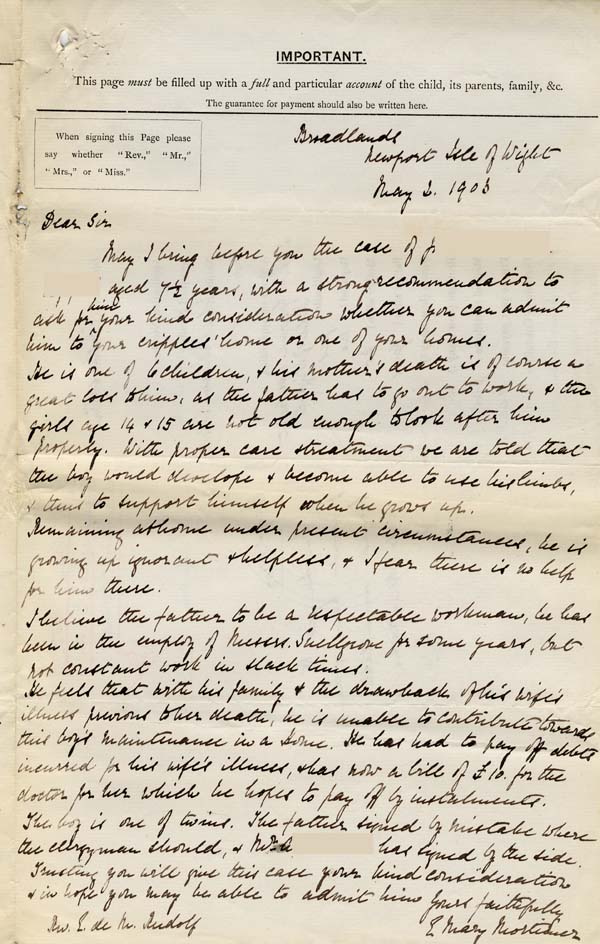 IMPORTANT.
This page must be filled up with a full and particular account of the child, its parents, family, &c.
The guarantee for payment should also be written here.
When signing this Page please
say whether "Rev.," "Mr.,"
"Mrs.," or "Miss."
Broadlands
Newport Isle of Wight
May 2. 1903
Dear Sir
May I bring before you the case of J
aged 7½ years, with a strong recommendation to
him
ask for your kind consideration whether you can admit
him to your cripples' home or one of your homes.
He is one of 6 children, & his mother's death is of course a
great loss to him, as the father has to go out to work, & the
girls age 14 & 15 are not old enough to look after him
properly. With proper care & treatment we are told that
the boy would develope & become able to use his limbs,
& thus to support himself when he grows up.
Remaining at home under present circumstances, he is
growing up ignorant & helpless, & I fear there is no help
for him there.
I believe the father to be a respectable workman, he has
been in the employ of Messrs. Snellgrove for some years, but
not constant work in slack times.
He feels that with his family & the drawback of his wife's
illness previous to her death, he is unable to contribute towards
this boy's maintenance in a Home. He has had to pay off debts
incurred for his wife's illness, & has now a bill of £10. for the
doctor for her which he hopes to pay off by instalments.
The boy is one of twins. The father signed by mistake where
the clergyman should, & has signed by the side.
Trusting you will give this case your kind consideration
& in hope you may be able to admit him Yours faithfully
Rev. E. de M. Rudolf E Mary Mortimer